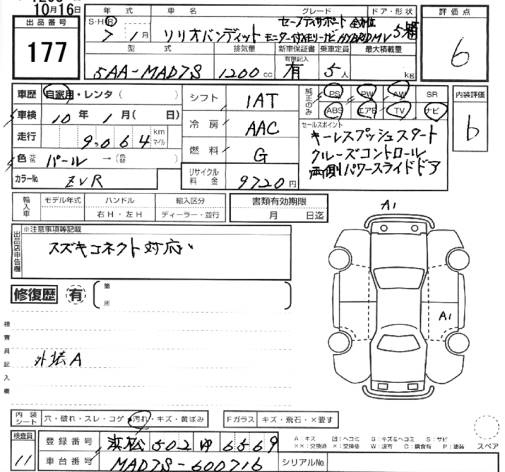 10月16日
出品番号
177
年式 車名 グレード ドア・形状 評価点
S・H・R 7年 1月 ソリオバンディット セーフティサポート 全方位モニター付メモリーナビ HYBRID MV 5 6
型式 排気量 新車保証書 乗車定員 最大積載量
有限記入
5AA-MA37S 1200cc 有 5人 kg
車歴 自家用・レンタ( )
車検 10年 1月( 日)
走行 9,064 km マイル
色 元色 パール → 色替
カラーNo ZVR
シフト 1AT
冷房 AAC
燃料 G
リサイクル料金 9720円
純正のみ PS PW AW SR
ABS エアB TV ナビ
内装評価
6
セールスポイント
キーレスプッシュスタート
クルーズコントロール
両側パワースライドドア
輸入車 モデル年式 ハンドル 輸入区分
年 右H・左H ディーラー・並行
書類有効期限
月 日迄
出品店申告欄
※注意事項等記載
スズキコネクト対応
修復歴 有 箇所
検査員記入欄
外装A
A1
A1
内装シート 穴・破れ・スレ・コゲ・汚れ・キズ・黄ばみ
Fガラス キズ・飛石・×要す
検査員
11
登録番号 浜松502ゆ6569
車台番号 MA37S-600716
シリアルNo.
スペア